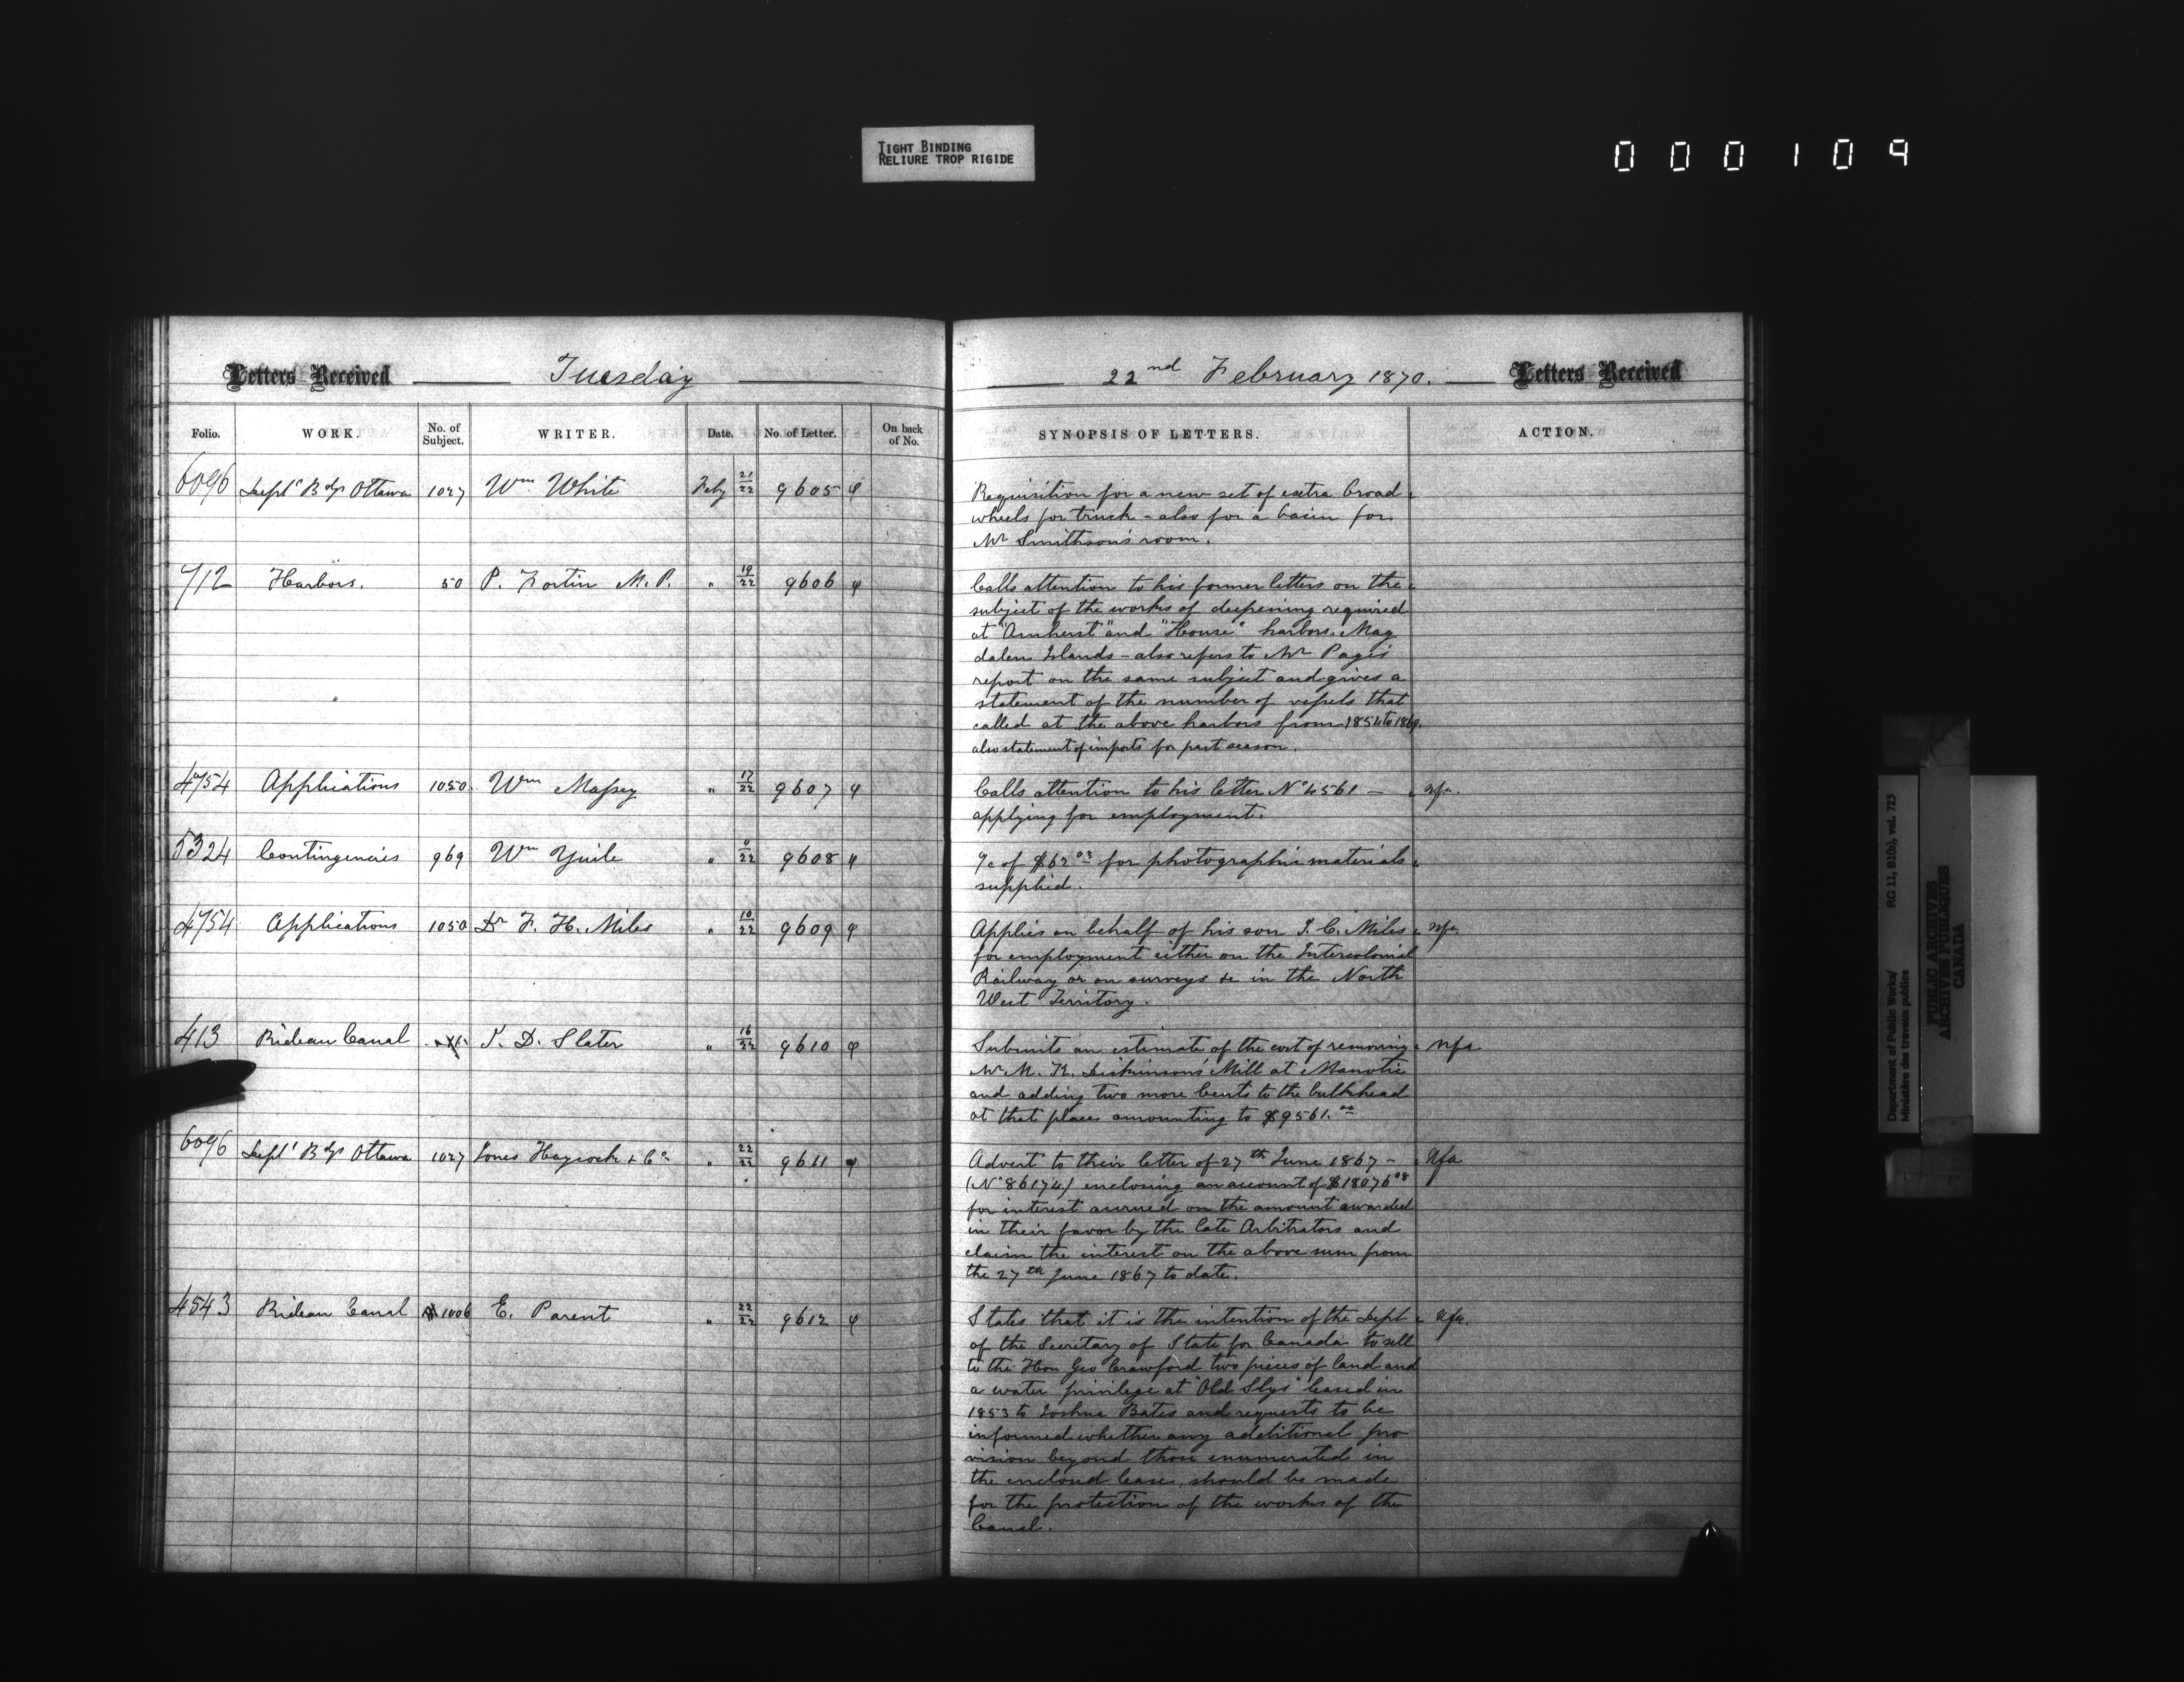 TIGHT BINDING
RELIURE TROP RIGIDE
000109
Letters Received Tuesday
22nd February 1870. Letters Received
Folio. WORK. No. of Subject. WRITER. Date. No. of Letter. On back of No.
SYNOPSIS OF LETTERS. ACTION.
6096 Deptl Bdgs Ottawa 1027 Wm White Feby 21/22 9605
Requisition for a new set of extra broad
wheels for truck - also for a basin for
Mr Smithson's room.
712 Harbors. 50 P. Fortin M.P. " 19/22 9606
Calls attention to his former letters on the
subject of the works of deepening required
at "Amherst" and "House" harbors, Mag
dalen Islands - also refers to Mr Page's
report on the same subject and gives a
statement of the number of vessels that
called at the above harbors from 1854 to 1869.
also statement of imports for past season.
4754 Applications 1050 Wm Massey " 17/22 9607
Calls attention to his letter No 4561 - nfa.
applying for employment.
5324 Contingencies 969 Wm Yuile " 0/22 9608
a/c of $62.03 for photographic materials
supplied.
4754 Applications 1050 Dr F. H. Miles " 10/22 9609
Applies on behalf of his son J. C. Miles nfa.
for employment either on the Intercolonial
Railway or on surveys &c in the North
West Territory.
413 Rideau Canal J. D. Slater " 16/22 9610
Submits an estimate of the cost of removing nfa
Mr M. K. Dickinson's Mill at Manotic
and adding two more bents to the bulkhead
at that place amounting to $9561.00
6096 Deptl Bdgs Ottawa 1027 Jones Haycock & Co " 22/22 9611
Advert to their letter of 27th June 1867 - nfa
(No 86174) enclosing an account of $18076.08
for interest accrued on the amount awarded
in their favor by the late Arbitrators and
claim the interest on the above sum from
the 27th June 1867 to date.
4543 Rideau Canal 1006 E. Parent " 22/22 9612
States that it is the intention of the Dept nfa.
of the Secretary of State for Canada to sell
to the Hon Geo Crawford two pieces of land and
a water privilege at "Old Slys" leased in
1853 to Joshua Bates and requests to be
informed whether any additional pro
vision beyond those enumerated in
the enclosed lease, should be made
for the protection of the works of the
Canal.
Department of Public Works/ RG 11, B1(b), vol. 723
Ministère des travaux publics
PUBLIC ARCHIVES
ARCHIVES PUBLIQUES
CANADA